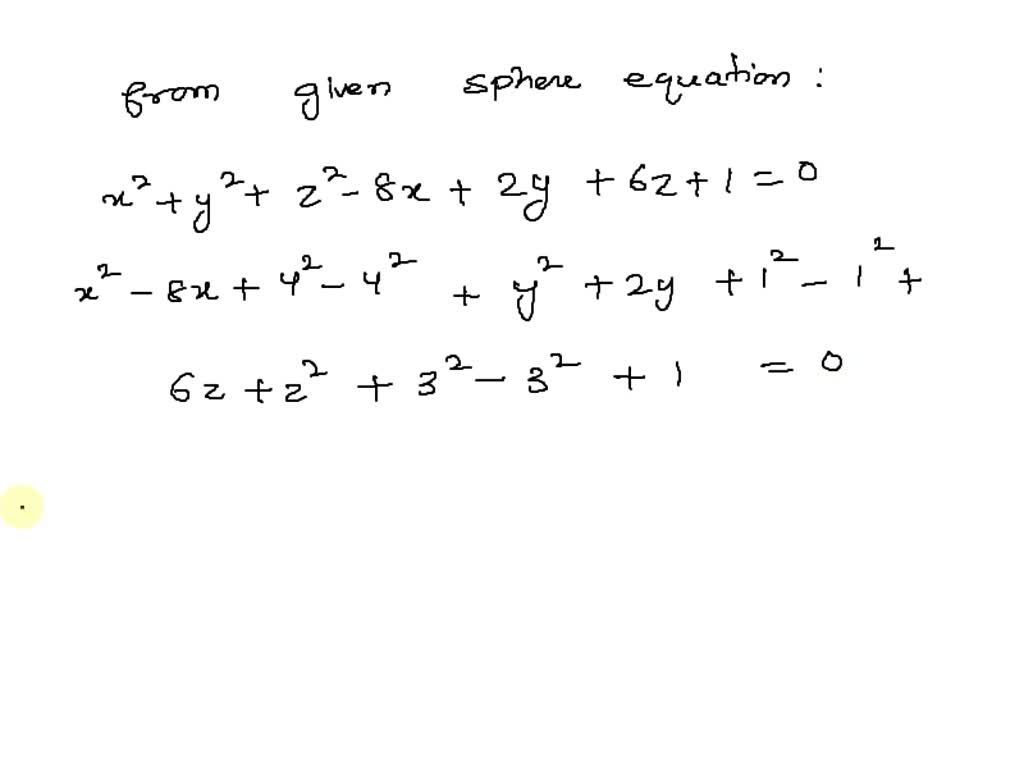 from given sphere equation :
x² + y² + z² - 8x + 2y + 6z + 1 = 0
x² - 8x + 4² - 4² + y² + 2y + 1² - 1² +
6z + z² + 3² - 3² + 1 = 0